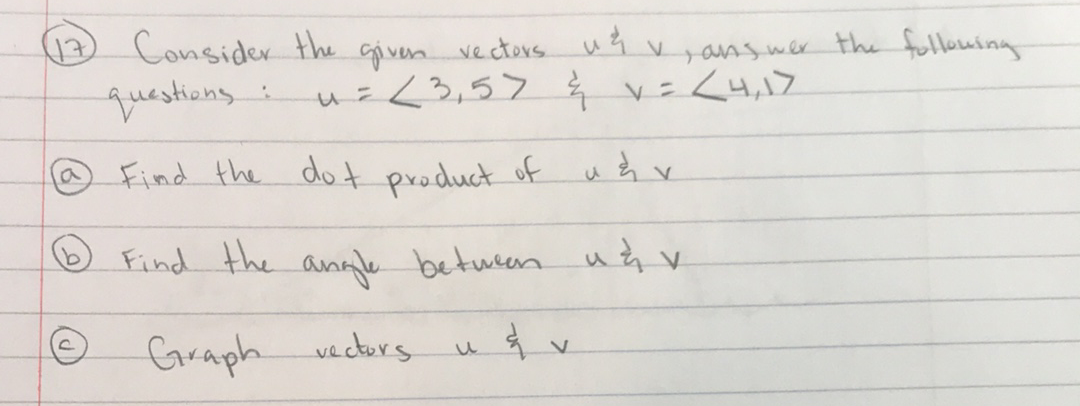 17 Consider the given vectors u & v, answer the following
questions : u = <3,5> & v = <4,1>
a Find the dot product of u & v
b Find the angle between u & v
c Graph vectors u & v